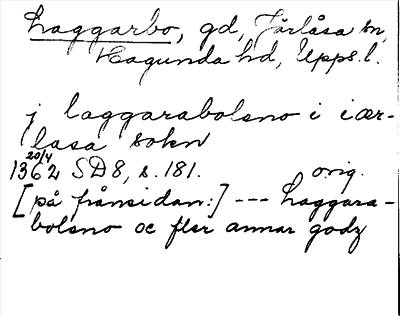 Laggarbo, gd, Järlåsa sn,
Hagunda hd, Upps. l.
j laggarabolsno i iær-
lasa sokn
20/4
1362 SD8, s. 181. orig.
[på frånsidan:] --- Laggara-
bolsno oc fler annar godz